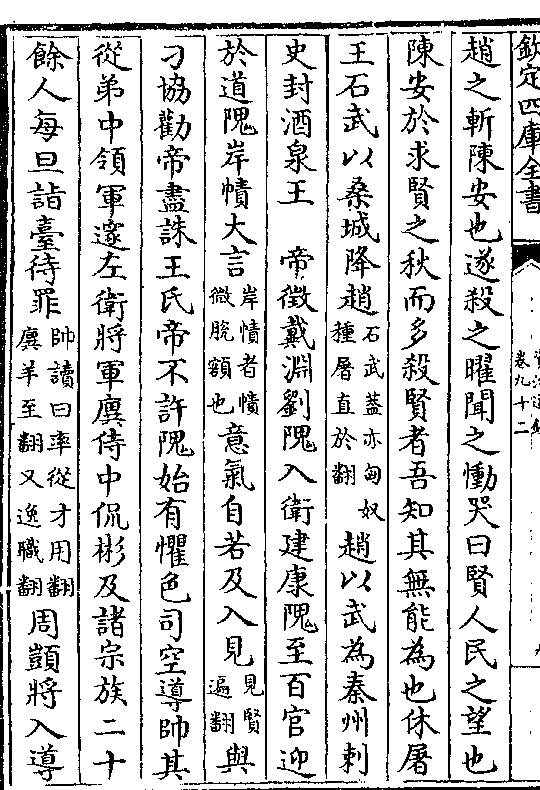 欽定四庫全書
卷九十二
趙之斬陳安也遂殺之曜聞之慟哭曰賢人民之望也
陳安於求賢之秋而多殺賢者吾知其無能為也休屠
王石武以桑城降趙石武蓋亦匈奴種屠直於翻趙以武為秦州刺
史封酒泉王　帝徵戴淵劉隗入衛建康隗至百官迎
於道隗岸幘大言岸幘者幘微脫額也意氣自若及入見見賢遍翻與
刁協勸帝盡誅王氏帝不許隗始有懼色司空導帥其
從弟中領軍邃左衛將軍廙侍中侃彬及諸宗族二十
餘人每旦詣臺待罪帥讀曰率從才用翻廙羊至翻又逸職翻周顗將入導